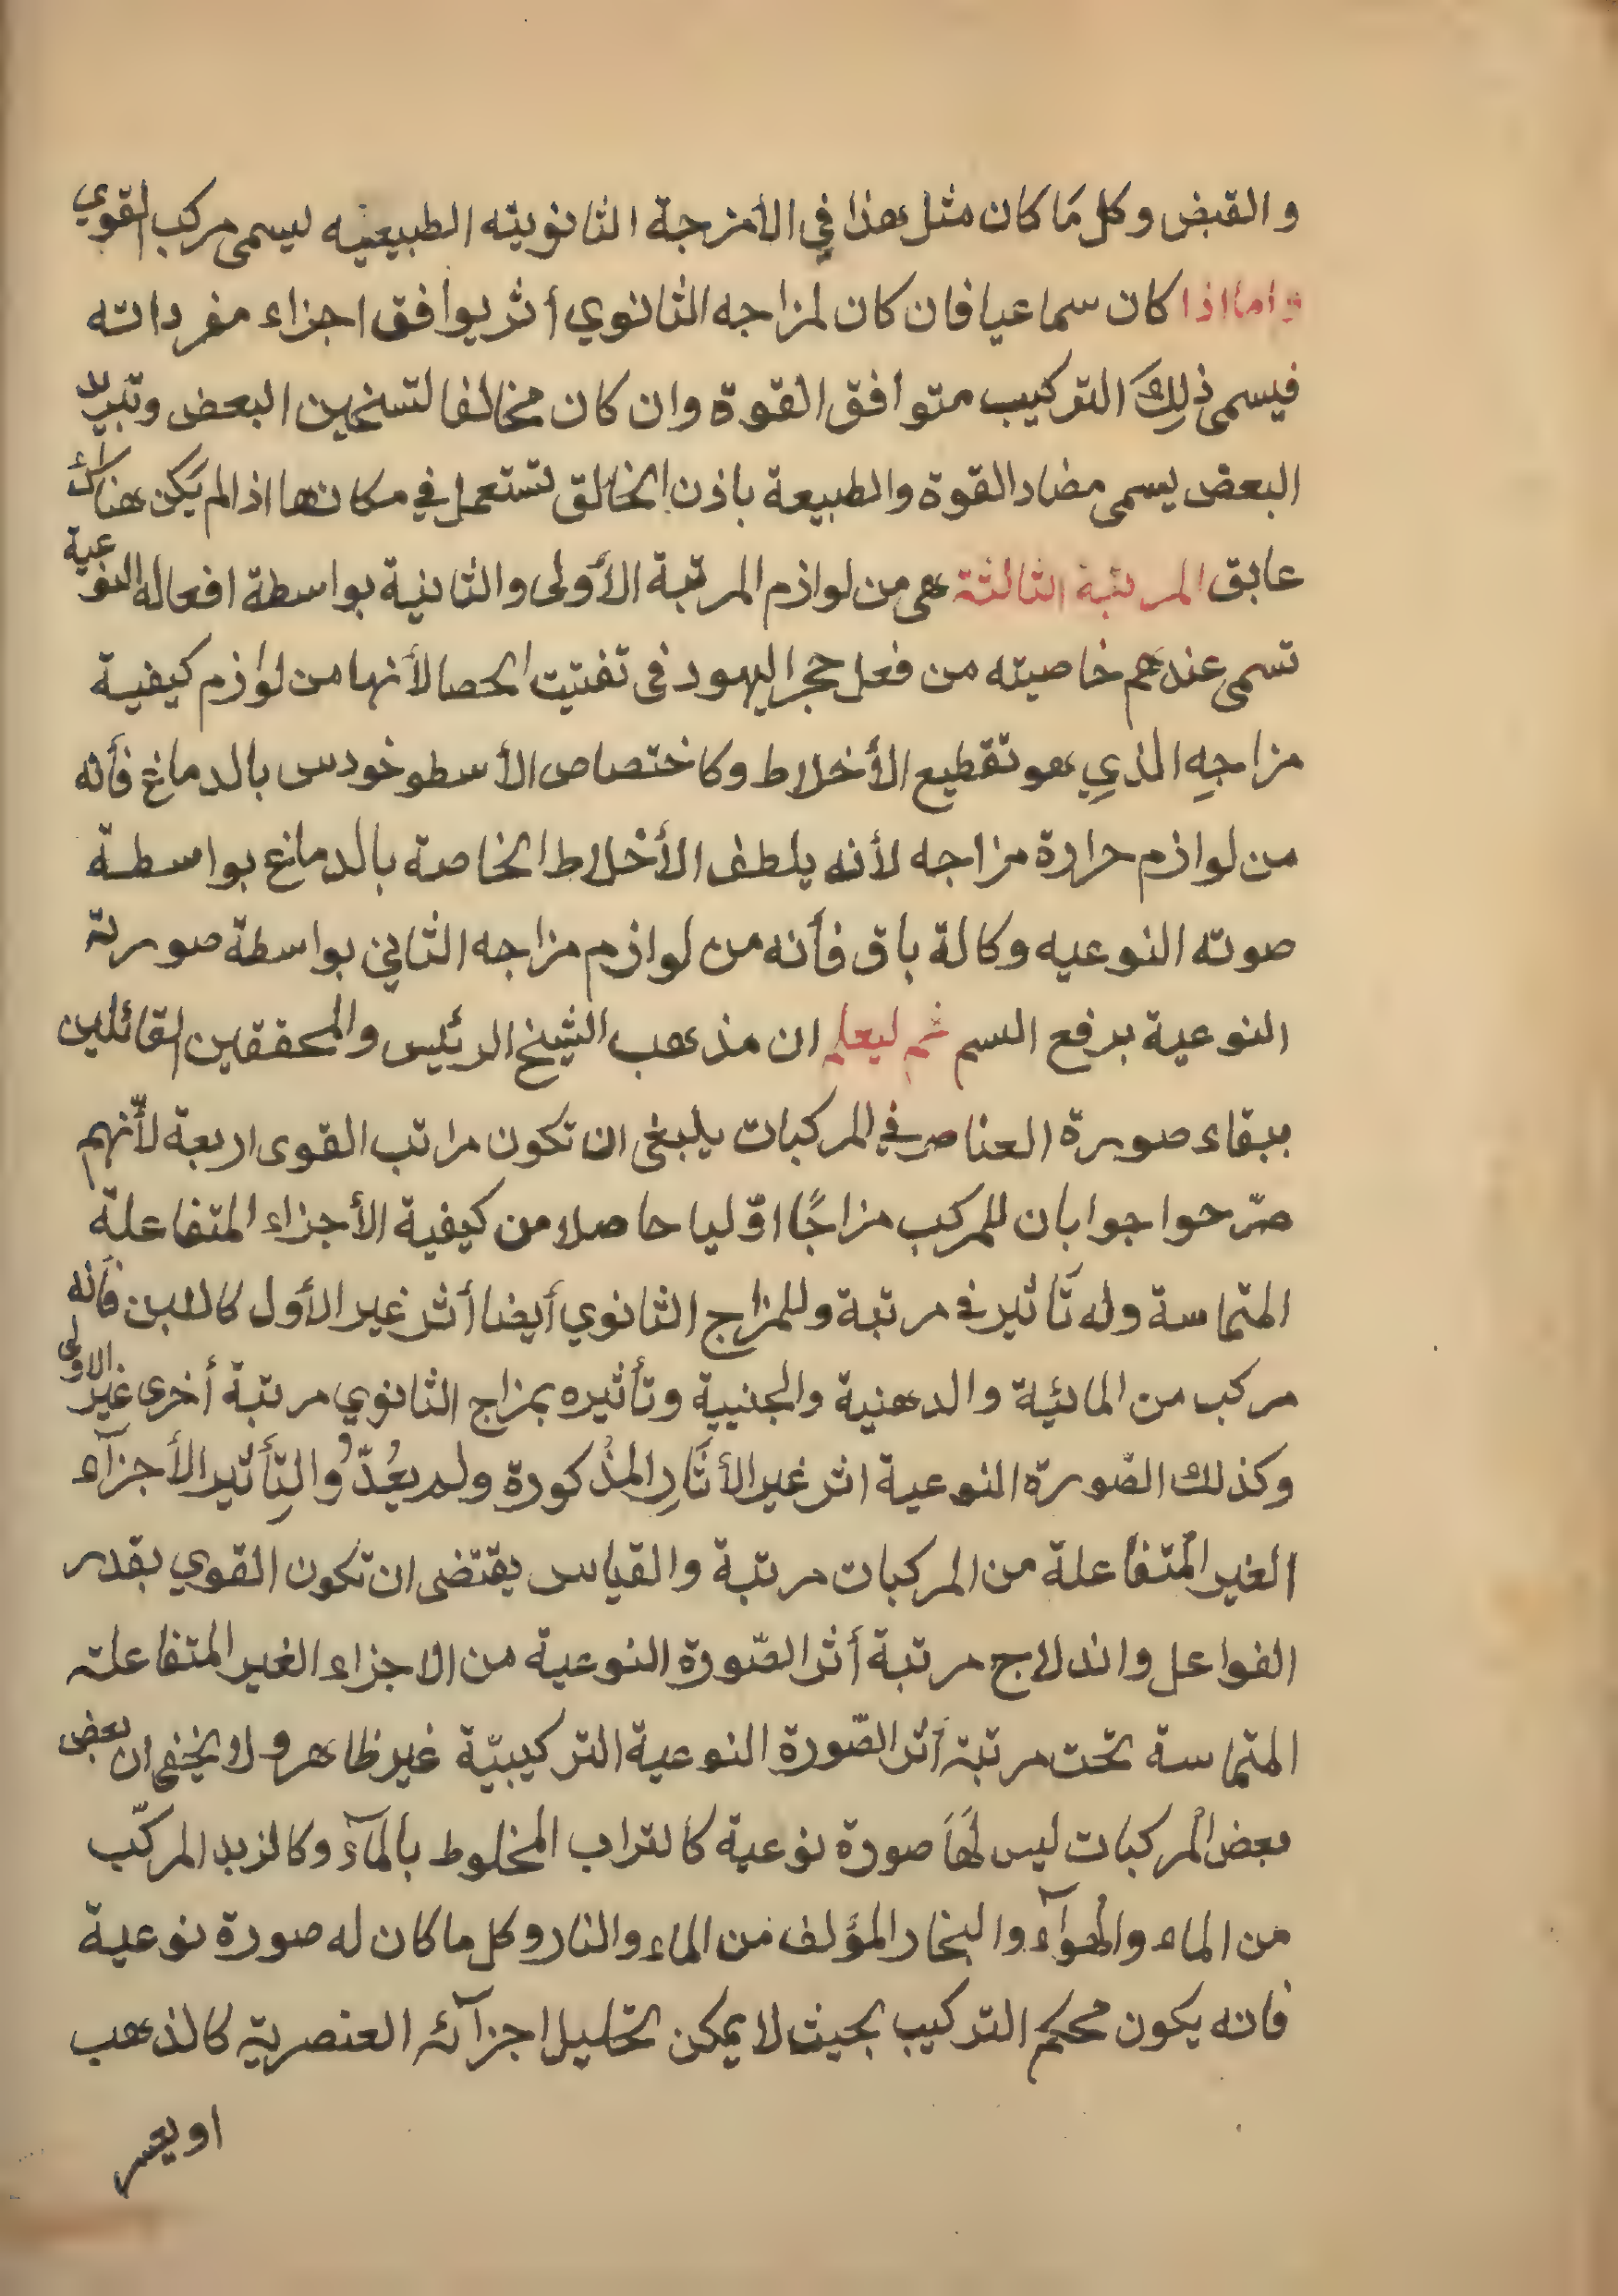 والقبض وكل مَا كان مثل هذا في الأمزجة الثانويته الطبيعيه ليسمى مركب القوي
واما اذا كان سماعيا فان كان لمزاجه الثانوي أثر يوافق اجزاء مفرداته
فيسمى ذلِكَ التركيب متوافق القوة وان كان مخالفا لتسخين البعض وتبريد
البعض يسمى مضاد القوة والطبيعة باذن الخالق تستعمل في مكانها اذا لم يكن هناك
عايق المرتبة الثالثة هي من لوازم المرتبة الأولى والثانية بواسطة افعاله النوعية
تسمى عندهم خاصيته من فعل حجر اليهود فى تفتيت الحصا لأنها من لوازم كيفية
مزاجهِ الذي هو تقطيع الأخلاط وكاختصاص الأسطوخودس بالدماغ فأنه
من لوازم حرارة مزاجه لأنه يلطف الأخلاط الخاصة بالدماغ بواسطة
صوته النوعيه وكالة باق فأنه من لوازم مزاجه الثاني بواسطة صورته
النوعية برفع السم ثم ليعلم ان مذهب الشيخ الرئيس والمحققين القائلين
ببقاء صورة العناصر في المركبات يلبغى ان تكون مراتب القوى اربعة لأنّهم
صرّحوا جوا بان للمركب مزاجًا اوّليا حاصلا من كيفية الأجزاء المتفاعلة
المتماسة وله تأثير في مرتبة وللمزاج الثانوي أيضا أثر غير الأول كاللبن فأنه
مركب من المائية والدهنية والجنبية وتأثيره بمزاج الثانوي مرتبة أخرى غير الاولى
وكذلك الصّورة النوعية اثر غير الأثارِ المذكورة ولم يعُدّوُا لتِأثير الأجزآء
الغير المتفاعلة من المركبات مرتبة والقياس يقتضى ان تكون القوي بقدر
الفواعل واندلاج مرتبة أثر الصّورة النوعية من الاجزاء الغير المتفاعلة
المتماسة تحت مرتبة أثر الصّورة النوعية التركيبيّة غير ظاهر ولا يخفى ان بعض
بعض المركبات ليس لَهَا صورة نوعية كالتراب المخلوط بالمآء وكالزبد المركّب
من الماء والهوآء والبخار المؤلف من الماء والنار وكل ما كان له صورة نوعية
فانه يكون محكم التركيب بحيث لا يمكن تحليل اجزآئه العنصرية كالذهب
او يعسر